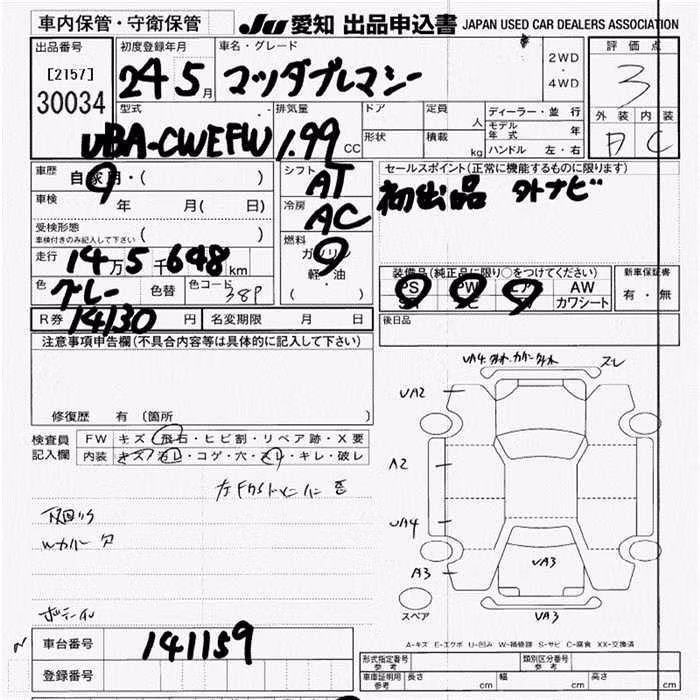 車内保管・守衛保管 JU 愛知 出品申込書 JAPAN USED CAR DEALERS ASSOCIATION
出品番号 初度登録年月 車名・グレード 2WD・4WD 評価点
[2157] 24 5月 マツダプレマシー 3
30034
型式 排気量 ドア 定員 人 ディーラー・並行 外装 内装
モデル年式 年
UBA-CWEFW 1.99 CC 形状 積載 kg ハンドル 左・右 A C
車歴 自家用・( ) シフト AT セールスポイント(正常に機能するものに限ります)
車検 年 月( 日) 冷房 AC 初出品 外ナビ
受検形態 ( )
車検付きのみ記入して下さい
燃料 ガソリン
軽・油
( )
走行 14万5千648km
装備品(純正品に限り○をつけてください) 新車保証書
PS PW エア AW
カワシート
有・無
色 グレー 色替 色コード 38P
R券 14130円 名変期限 月 日 後日品
注意事項申告欄(不具合内容等は具体的に記入して下さい)
修復歴 有 〔箇所 〕
検査員記入欄 FW キズ・飛石・ヒビ割・リペア跡・X要
内装 キズ・汚レ・コゲ・穴・スレ・キレ・破レ
下回リサ
Wカバー欠
UA4
スレ
UA2
A2
UA4
A3
UA3
UA3
スペア
A-キズ E-エクボ U-凹み W-補修跡 S-サビ C-腐食 XX-交換済
車台番号 141159
登録番号
形式指定番号 参考 類別区分番号 参考
車庫証明用 参考 長さ cm 幅 cm 高さ cm